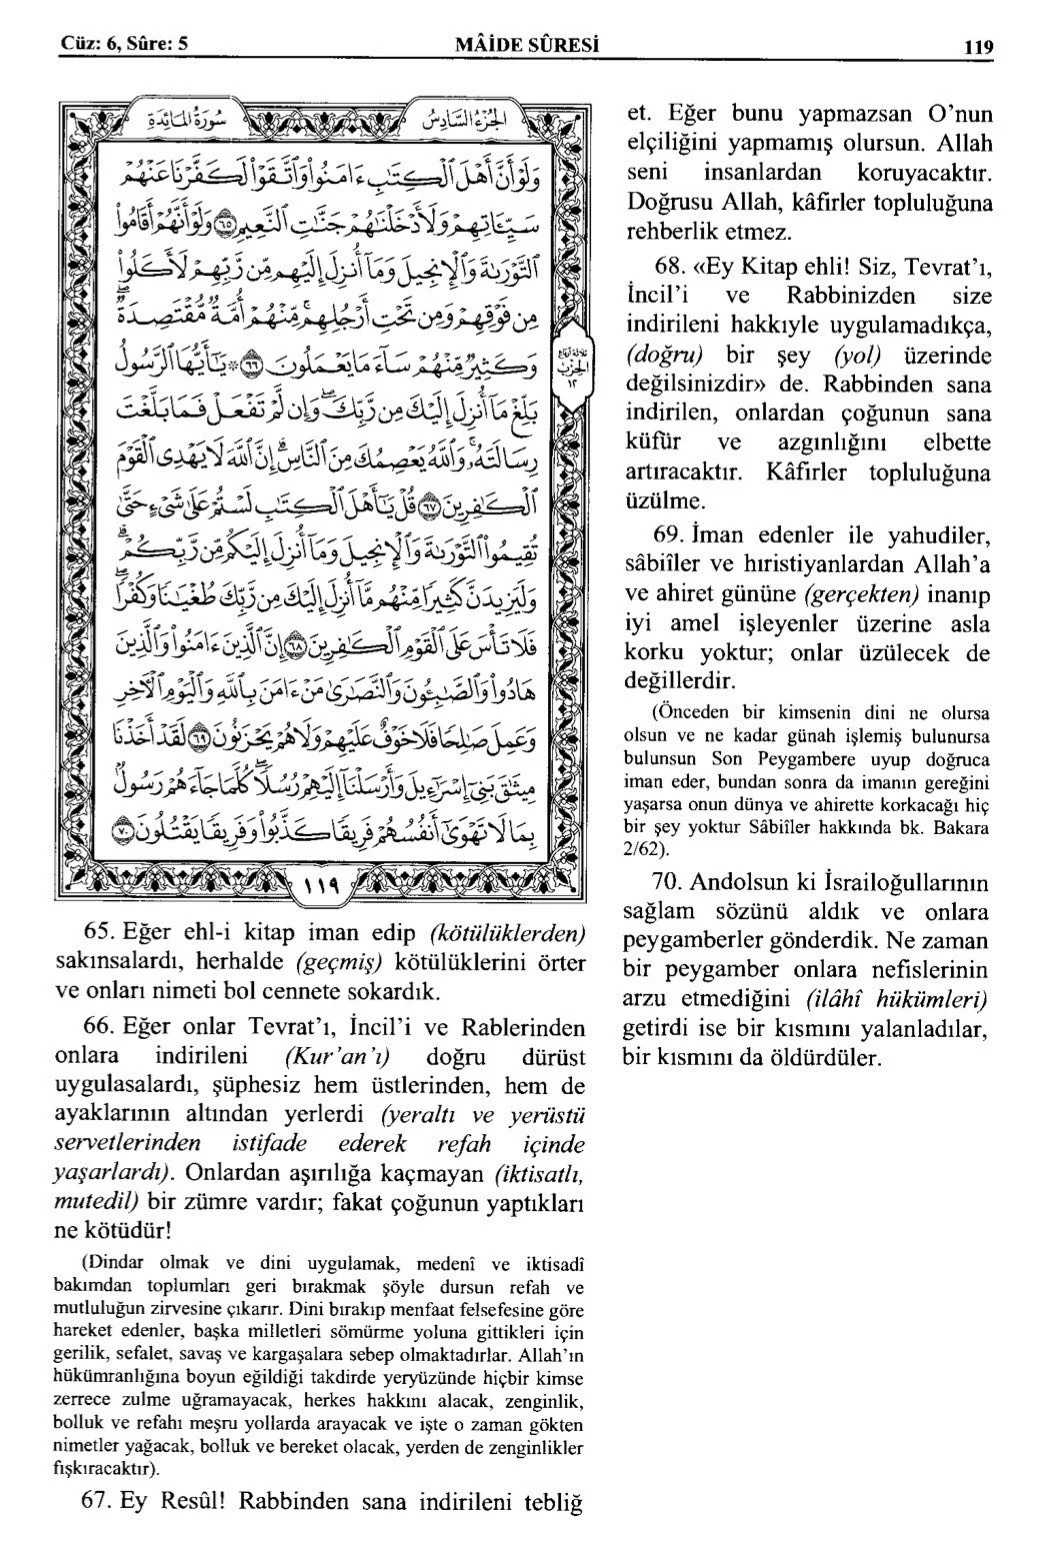 Cüz: 6, Sûre: 5
MÂİDE SÛRESİ
119
سُورَةُ المَائِدَةِ
الجُزْءُ السَّادِسُ
وَلَوْ أَنَّ أَهْلَ ٱلْكِتَٰبِ ءَامَنُوا۟ وَٱتَّقَوْا۟ لَكَفَّرْنَا عَنْهُمْ
سَيِّـَٔاتِهِمْ وَلَأَدْخَلْنَٰهُمْ جَنَّٰتِ ٱلنَّعِيمِ ٦٥ وَلَوْ أَنَّهُمْ أَقَامُوا۟
ٱلتَّوْرَىٰةَ وَٱلْإِنجِيلَ وَمَآ أُنزِلَ إِلَيْهِم مِّن رَّبِّهِمْ لَأَكَلُوا۟
مِن فَوْقِهِمْ وَمِن تَحْتِ أَرْجُلِهِم ۚ مِّنْهُمْ أُمَّةٌ مُّقْتَصِدَةٌ ۖ
وَكَثِيرٌ مِّنْهُمْ سَآءَ مَا يَعْمَلُونَ ٦٦ * يَٰٓأَيُّهَا ٱلرَّسُولُ
بَلِّغْ مَآ أُنزِلَ إِلَيْكَ مِن رَّبِّكَ ۖ وَإِن لَّمْ تَفْعَلْ فَمَا بَلَّغْتَ
رِسَالَتَهُۥ ۚ وَٱللَّهُ يَعْصِمُكَ مِنَ ٱلنَّاسِ ۗ إِنَّ ٱللَّهَ لَا يَهْدِى ٱلْقَوْمَ
ٱلْكَٰفِرِينَ ٦٧ قُلْ يَٰٓأَهْلَ ٱلْكِتَٰبِ لَسْتُمْ عَلَىٰ شَىْءٍ حَتَّىٰ
تُقِيمُوا۟ ٱلتَّوْرَىٰةَ وَٱلْإِنجِيلَ وَمَآ أُنزِلَ إِلَيْكُم مِّن رَّبِّكُمْ ۗ
وَلَيَزِيدَنَّ كَثِيرًا مِّنْهُم مَّآ أُنزِلَ إِلَيْكَ مِن رَّبِّكَ طُغْيَٰنًا وَكُفْرًا ۖ
فَلَا تَأْسَ عَلَى ٱلْقَوْمِ ٱلْكَٰفِرِينَ ٦٨ إِنَّ ٱلَّذِينَ ءَامَنُوا۟ وَٱلَّذِينَ
هَادُوا۟ وَٱلصَّٰبِـُٔونَ وَٱلنَّصَٰرَىٰ مَنْ ءَامَنَ بِٱللَّهِ وَٱلْيَوْمِ ٱلْءَاخِرِ
وَعَمِلَ صَٰلِحًا فَلَا خَوْفٌ عَلَيْهِمْ وَلَا هُمْ يَحْزَنُونَ ٦٩ لَقَدْ أَخَذْنَا
مِيثَٰقَ بَنِىٓ إِسْرَٰٓءِيلَ وَأَرْسَلْنَآ إِلَيْهِمْ رُسُلًا ۖ كُلَّمَا جَآءَهُمْ رَسُولٌۢ
بِمَا لَا تَهْوَىٰٓ أَنفُسُهُمْ فَرِيقًا كَذَّبُوا۟ وَفَرِيقًا يَقْتُلُونَ ٧٠
ثلاثة أرباع
الحزب
١٢
١١٩
65. Eğer ehl-i kitap iman edip (kötülüklerden)
sakınsalardı, herhalde (geçmiş) kötülüklerini örter
ve onları nimeti bol cennete sokardık.
66. Eğer onlar Tevrat’ı, İncil’i ve Rablerinden
onlara indirileni (Kur’an’ı) doğru dürüst
uygulasalardı, şüphesiz hem üstlerinden, hem de
ayaklarının altından yerlerdi (yeraltı ve yerüstü
servetlerinden istifade ederek refah içinde
yaşarlardı). Onlardan aşırılığa kaçmayan (iktisatlı,
mutedil) bir zümre vardır; fakat çoğunun yaptıkları
ne kötüdür!
(Dindar olmak ve dini uygulamak, medenî ve iktisadî
bakımdan toplumları geri bırakmak şöyle dursun refah ve
mutluluğun zirvesine çıkarır. Dini bırakıp menfaat felsefesine göre
hareket edenler, başka milletleri sömürme yoluna gittikleri için
gerilik, sefalet, savaş ve kargaşalara sebep olmaktadırlar. Allah’ın
hükümranlığına boyun eğildiği takdirde yeryüzünde hiçbir kimse
zerrece zulme uğramayacak, herkes hakkını alacak, zenginlik,
bolluk ve refahı meşru yollarda arayacak ve işte o zaman gökten
nimetler yağacak, bolluk ve bereket olacak, yerden de zenginlikler
fışkıracaktır).
67. Ey Resûl! Rabbinden sana indirileni tebliğ
et. Eğer bunu yapmazsan O’nun
elçiliğini yapmamış olursun. Allah
seni insanlardan koruyacaktır.
Doğrusu Allah, kâfirler topluluğuna
rehberlik etmez.
68. «Ey Kitap ehli! Siz, Tevrat’ı,
İncil’i ve Rabbinizden size
indirileni hakkıyle uygulamadıkça,
(doğru) bir şey (yol) üzerinde
değilsinizdir» de. Rabbinden sana
indirilen, onlardan çoğunun sana
küfür ve azgınlığını elbette
artıracaktır. Kâfirler topluluğuna
üzülme.
69. İman edenler ile yahudiler,
sâbiîler ve hıristiyanlardan Allah’a
ve ahiret gününe (gerçekten) inanıp
iyi amel işleyenler üzerine asla
korku yoktur; onlar üzülecek de
değillerdir.
(Önceden bir kimsenin dini ne olursa
olsun ve ne kadar günah işlemiş bulunursa
bulunsun Son Peygambere uyup doğruca
iman eder, bundan sonra da imanın gereğini
yaşarsa onun dünya ve ahirette korkacağı hiç
bir şey yoktur Sâbiîler hakkında bk. Bakara
2/62).
70. Andolsun ki İsrailoğullarının
sağlam sözünü aldık ve onlara
peygamberler gönderdik. Ne zaman
bir peygamber onlara nefislerinin
arzu etmediğini (ilâhî hükümleri)
getirdi ise bir kısmını yalanladılar,
bir kısmını da öldürdüler.